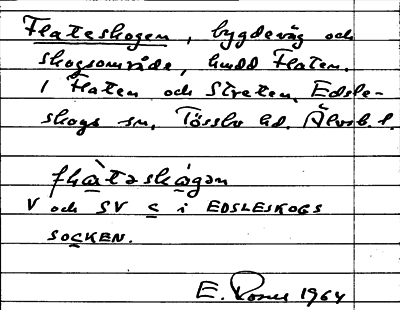 Flateskogen, bygdeväg och
skogsområde, hmdd Flaten.
i Flaten och Straten, Edsle-
skogs sn, Tössbo hd. Älvsb. l.
flàtaskágan
V och SV c i EDSLESKOGS
SOCKEN.
E. 1964